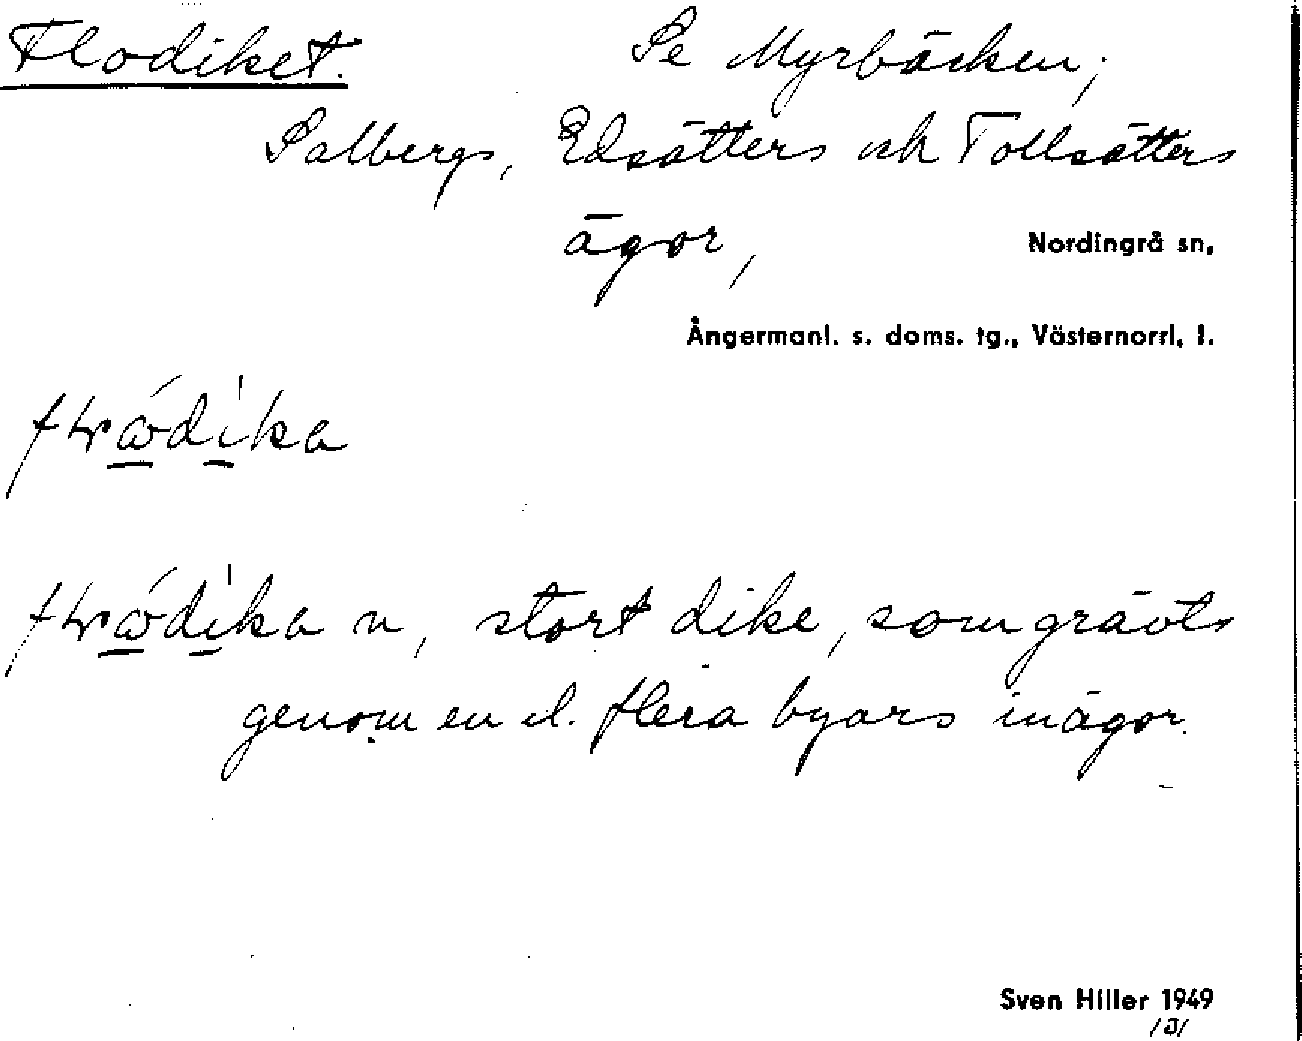 Flodiket. Se Myrbäcken;
Salbergs, Edsätters och Tollsätters
ägor,
Nordingrå sn,
Ångermanl. s. doms. tg., Västernorrl. l.
stort dike, som grävts
genom en el. flera byars inägor.
Sven Hiller 1949
/J/